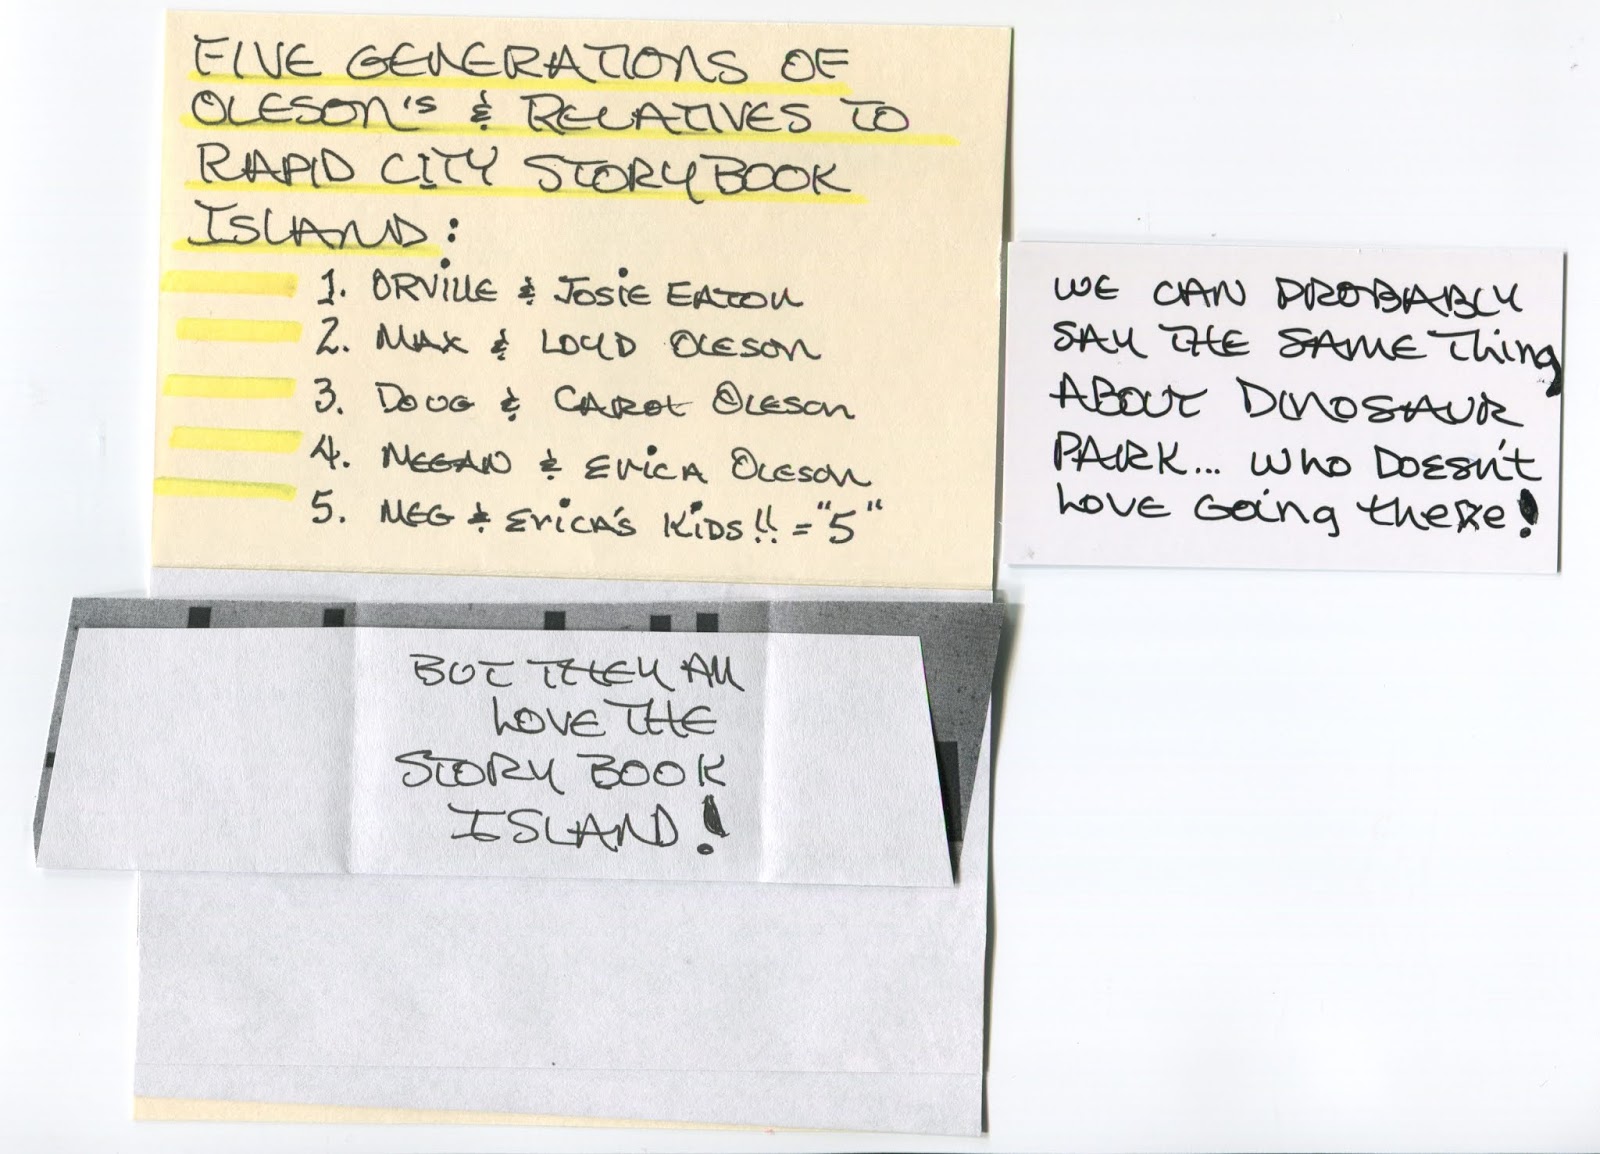 FIVE GENERATIONS OF
OLESON'S & RELATIVES TO
RAPID CITY STORYBOOK
ISLAND:
1. ORVILLE & JOSIE EATON
2. MAX & LOYD OLESON
3. DOUG & CAROL OLESON
4. MEGAN & ERICA OLESON
5. MEG & ERICA'S KIDS!! = "5"
WE CAN PROBABLY
SAY THE SAME THING
ABOUT DINOSAUR
PARK... WHO DOESN'T
LOVE GOING THERE!
BUT THEY ALL
LOVE THE
STORY BOOK
ISLAND!